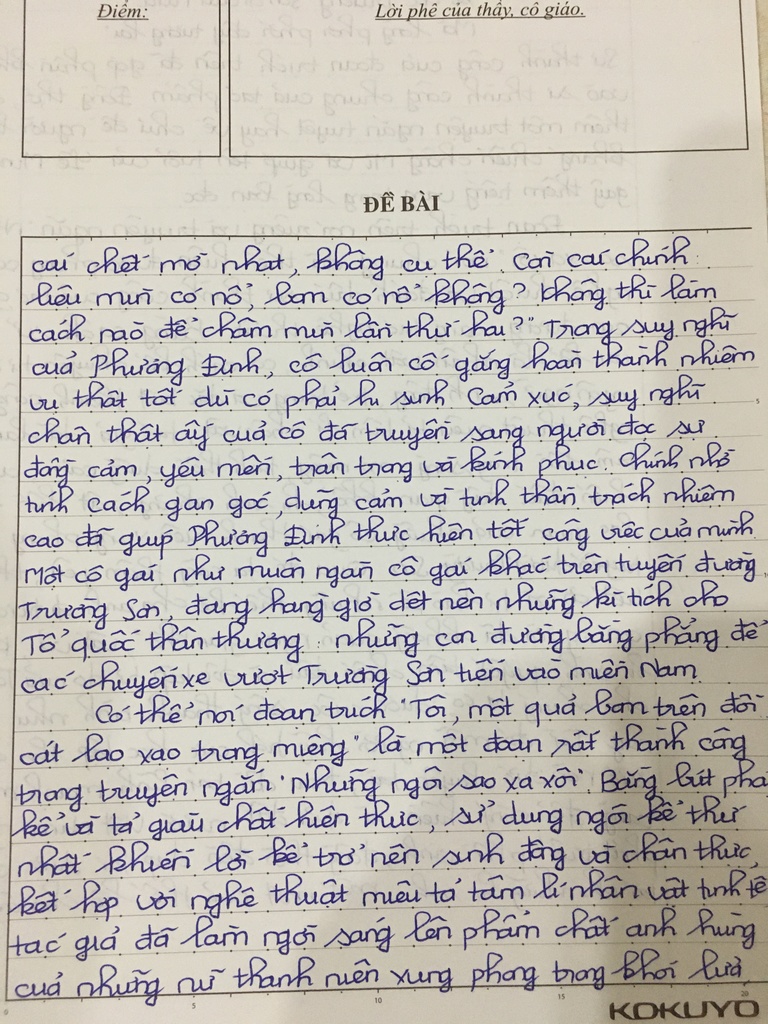 Điểm:
Lời phê của thầy, cô giáo.
ĐỀ BÀI
cái chết mờ nhạt, không cụ thể. Còn cái chính:
liệu mìn có nổ, bom có nổ không? Không thì làm
cách nào để châm mìn lần thứ hai?" Trong suy nghĩ
của Phương Định, cô luôn cố gắng hoàn thành nhiệm
vụ thật tốt dù có phải hi sinh. Cảm xúc, suy nghĩ
chân thật ấy của cô đã truyền sang người đọc sự
đồng cảm, yêu mến, trân trọng và kính phục. Chính nhờ
tính cách gan góc, dũng cảm và tinh thần trách nhiệm
cao đã giúp Phương Định thực hiện tốt công việc của mình.
Một cô gái như muôn ngàn cô gái khác trên tuyến đường
Trường Sơn, đang hàng giờ dệt nên những kì tích cho
Tổ quốc thân thương: những con đường bằng phẳng để
các chuyến xe vượt Trường Sơn tiến vào miền Nam.
Có thể nói đoạn trích "Tôi, một quả bom trên đồi
cát lao xao trong miệng" là một đoạn rất thành công
trong truyện ngắn "Những ngôi sao xa xôi". Bằng bút pháp
kể và tả giàu chất hiện thực, sử dụng ngôi kể thứ
nhất khiến lời kể trở nên sinh động và chân thực,
kết hợp với nghệ thuật miêu tả tâm lí nhân vật tinh tế
tác giả đã làm ngời sáng lên phẩm chất anh hùng
của những nữ thanh niên xung phong trong khói lửa
0 5 10 15 20
KOKUYO